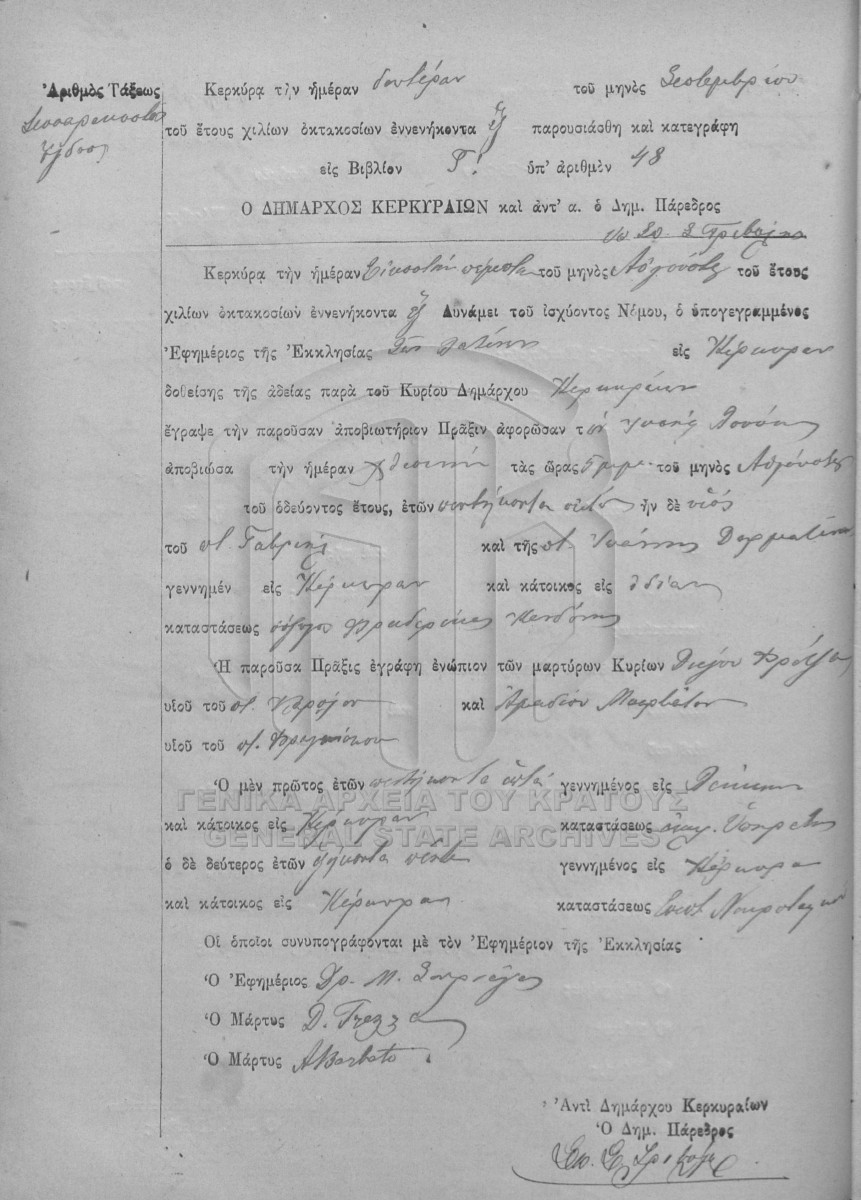 Ἀριθμὸς Τάξεως
Τεσσαρακοστὸς
Ὄγδοος
Κερκύρᾳ τὴν ἡμέραν δευτέραν τοῦ μηνὸς Σεπτεμβρίου
τοῦ ἔτους χιλίων ὀκτακοσίων ἐννενήκοντα ἓξ παρουσιάσθη καὶ κατεγράφη
εἰς Βιβλίον Γ' ὑπ' ἀριθμὸν 48
Ο ΔΗΜΑΡΧΟΣ ΚΕΡΚΥΡΑΙΩΝ καὶ ἀντ' α. ὁ Δημ. Πάρεδρος
Κερκύρᾳ τὴν ἡμέραν Εἰκοστὴν πέμπτην τοῦ μηνὸς Αὐγούστου τοῦ ἔτους
χιλίων ὀκτακοσίων ἐννενήκοντα ἓξ Δυνάμει τοῦ ἰσχύοντος Νόμου, ὁ ὑπογεγραμμένος
Ἐφημέριος τῆς Ἐκκλησίας τῶν Λατίνων εἰς Κέρκυραν
δοθείσης τῆς ἀδείας παρὰ τοῦ Κυρίου Δημάρχου Κερκυραίων
ἔγραψε τὴν παροῦσαν ἀποβιωτήριον Πρᾶξιν ἀφορῶσαν τὸν Ἰωσὴφ
ἀποβιώσα τὴν ἡμέραν χθεσινὴν τὰς ὥρας 5 μ.μ. τοῦ μηνὸς Αὐγούστου
τοῦ ὁδεύοντος ἔτους, ἐτῶν πεντήκοντα οὗτος ἦν δὲ υἱὸς
τοῦ ποτ. Γαβριὴλ καὶ τῆς ποτ.
γεννημέν εἰς Κέρκυραν καὶ κάτοικος εἰς ἰδίαν
καταστάσεως σύζυγος Φρεδερίκας
Ἡ παροῦσα Πρᾶξις ἐγράφη ἐνώπιον τῶν μαρτύρων Κυρίων
υἱοῦ τοῦ ποτ. καὶ Ἀμαδέου Μπαρμπάτου
υἱοῦ τοῦ ποτ. Φραγκίσκου
Ὁ μὲν πρῶτος ἐτῶν πεντήκοντα ἑπτὰ γεννημένος εἰς
καὶ κάτοικος εἰς Κέρκυραν καταστάσεως ἐκκλ. Ὑπηρέτης
ὁ δὲ δεύτερος ἐτῶν ἑξήκοντα πέντε γεννημένος εἰς Κέρκυρα
καὶ κάτοικος εἰς Κέρκυραν καταστάσεως
Οἱ ὁποῖοι συνυπογράφονται μὲ τὸν Ἐφημέριον τῆς Ἐκκλησίας
Ὁ Ἐφημέριος Δρ. Μ.
Ὁ Μάρτυς D. Frezza
Ὁ Μάρτυς A Barbato
Ἀντὶ Δημάρχου Κερκυραίων
Ὁ Δημ. Πάρεδρος
ΓΕΝΙΚΑ ΑΡΧΕΙΑ ΤΟΥ ΚΡΑΤΟΥΣ
GENERAL STATE ARCHIVES